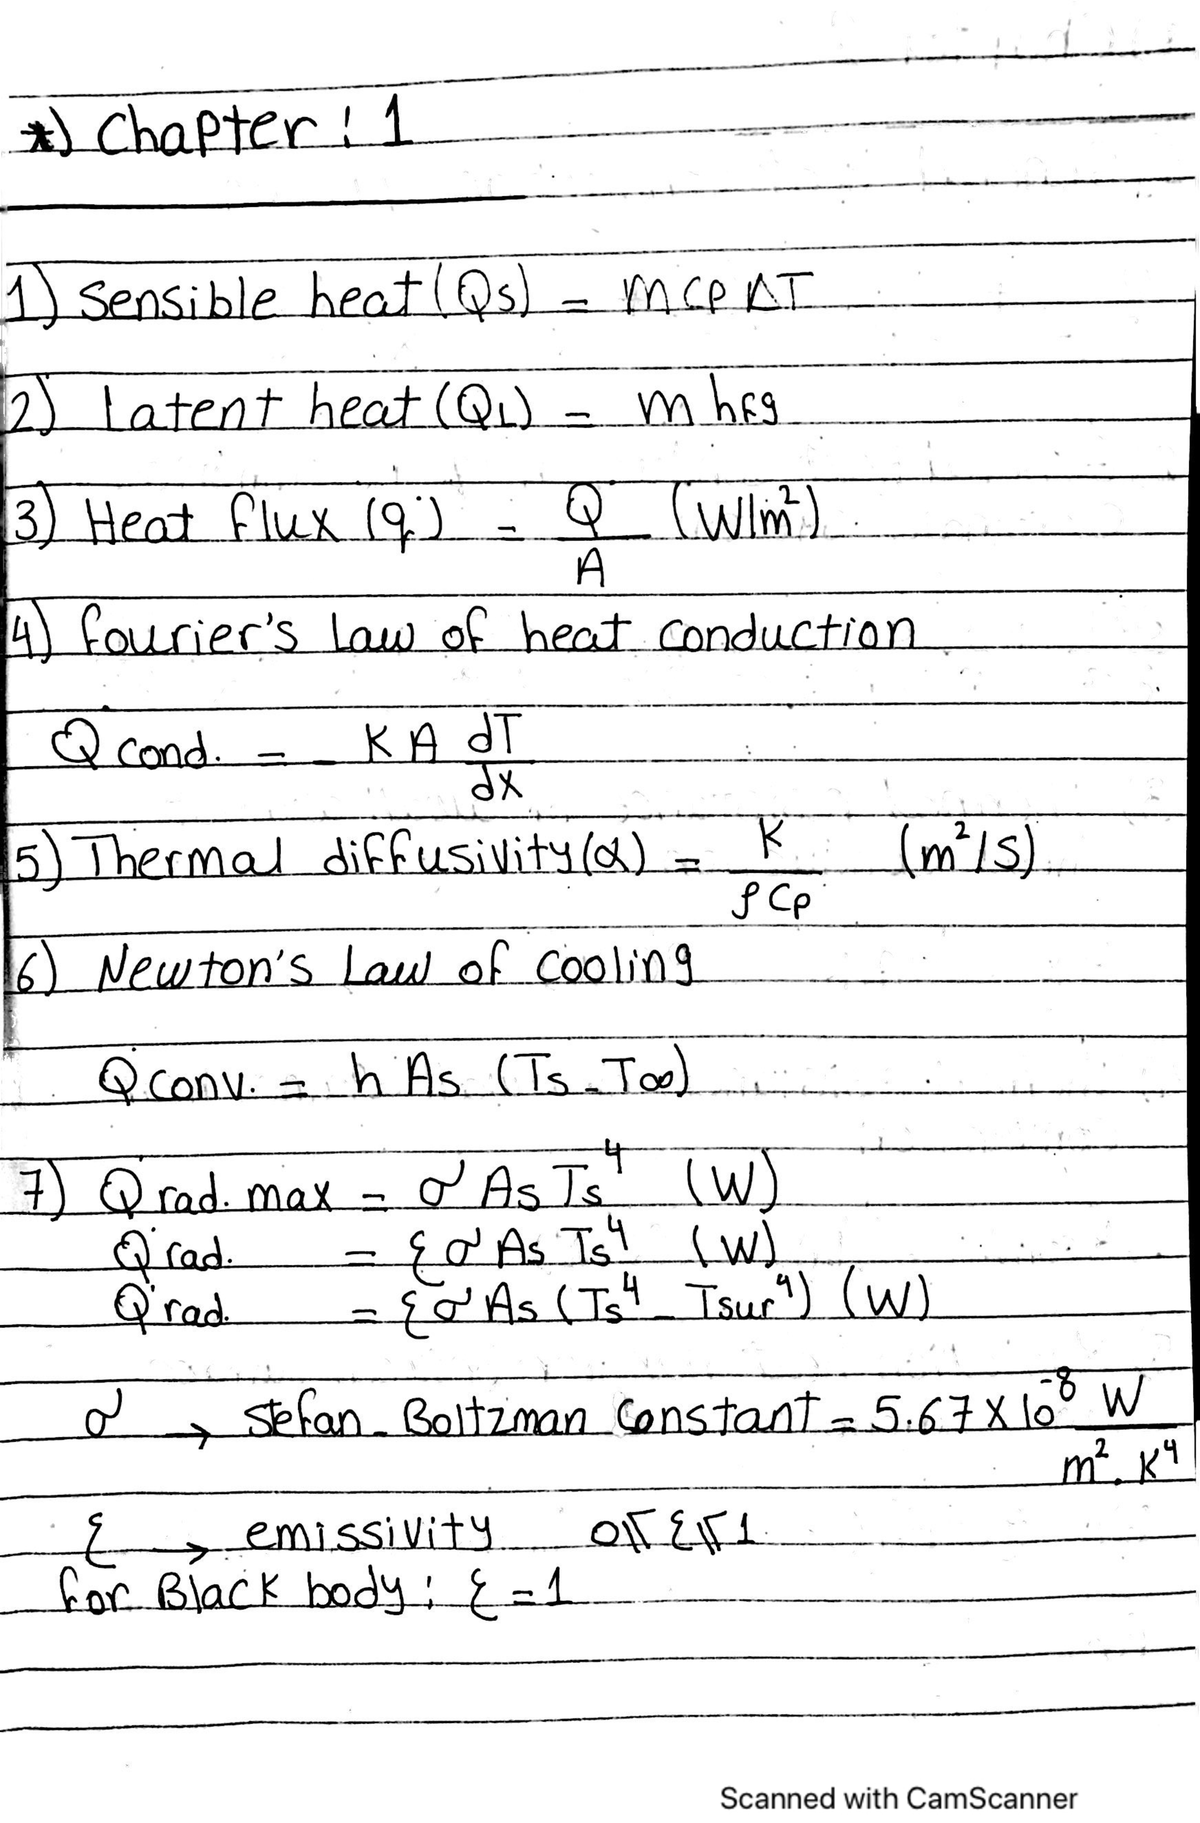 *) Chapter : 1
1) Sensible heat (Qs) = m cp ΔT
2) Latent heat (QL) = m hfg
3) Heat flux (q̇) = Q̇/A (W/m²)
4) fourier's Law of heat conduction
Q̇ cond. = - K A dT/dx
5) Thermal diffusivity (α) = K/ρCp (m²/s)
6) Newton's Law of cooling
Q̇ conv. = h As (Ts - T∞)
7) Q̇ rad. max = σ As Ts⁴ (W)
Q̇ rad. = ε σ As Ts⁴ (W)
Q̇ rad. = ε σ As (Ts⁴ - Tsur⁴) (W)
σ → Stefan - Boltzman Constant = 5.67 X 10⁻⁸ W/m². K⁴
ε → emissivity 0 ≤ ε ≤ 1
for Black body : ε = 1
Scanned with CamScanner